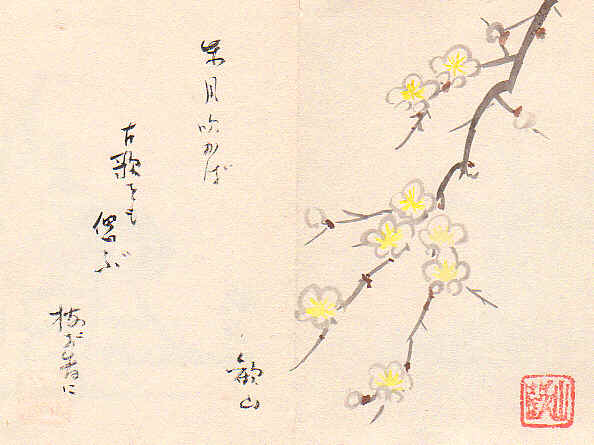 東風吹かば
古歌をも
偲ぶ
梅が香に